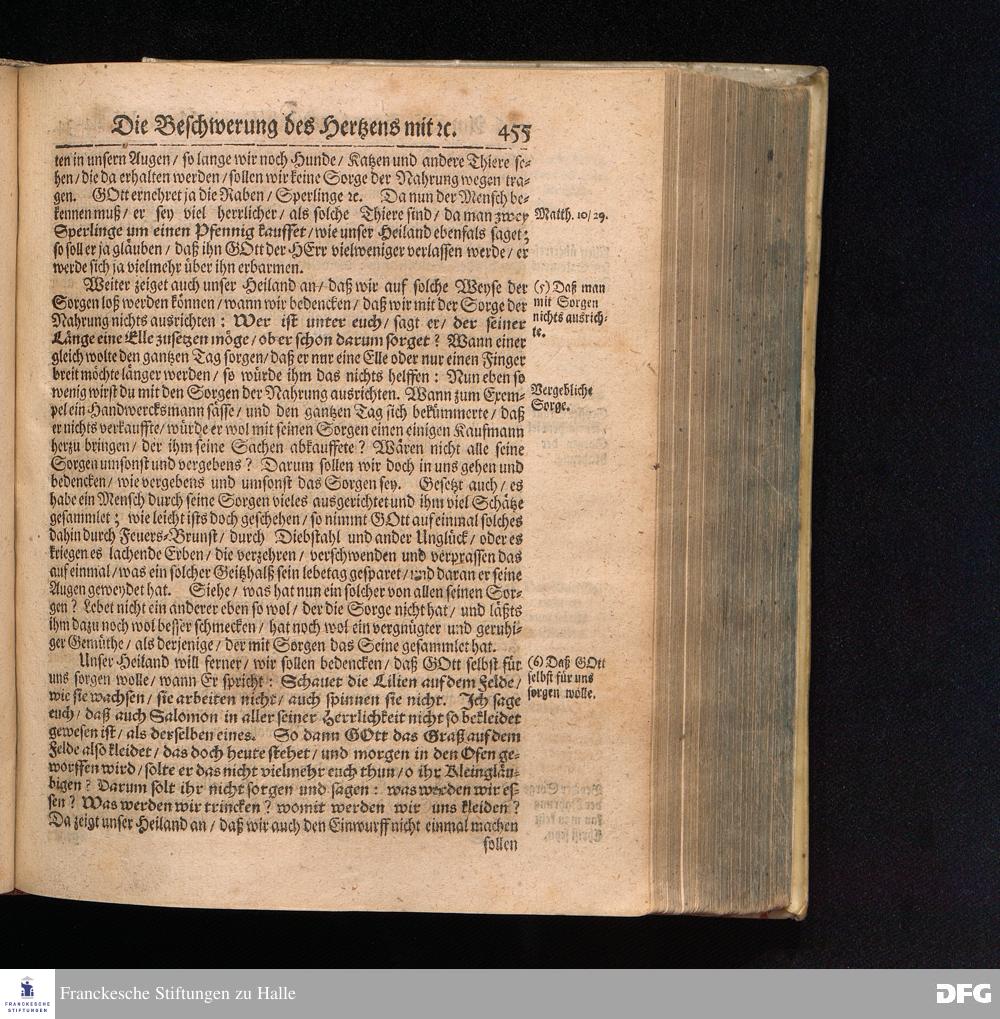 Die Beschwerung des Hertzens mit ꝛc. 455
ten in unsern Augen / so lange wir noch Hunde / Katzen und andere Thiere se-
hen / die da erhalten werden / sollen wir keine Sorge der Nahrung wegen tra-
gen. GOtt ernehret ja die Raben / Sperlinge ꝛc. Da nun der Mensch be-
kennen muß / er sey viel herrlicher / als solche Thiere sind / da man zwey
Sperlinge um einen Pfennig kauffet / wie unser Heiland ebenfals saget;
so soll er ja gläuben / daß ihn GOtt der HErr vielweniger verlassen werde / er
werde sich ja vielmehr über ihn erbarmen.
Matth. 10/29.
Weiter zeiget auch unser Heiland an / daß wir auf solche Weyse der
Sorgen loß werden können / wann wir bedencken / daß wir mit der Sorge der
Nahrung nichts ausrichten: Wer ist unter euch / sagt er / der seiner
Länge eine Elle zusetzen möge / ob er schon darum sorget? Wann einer
gleich wolte den gantzen Tag sorgen / daß er nur eine Elle oder nur einen Finger
breit möchte länger werden / so würde ihm das nichts helffen: Nun eben so
wenig wirst du mit den Sorgen der Nahrung ausrichten. Wann zum Exem-
pel ein Handwercksmann sässe / und den gantzen Tag sich bekümmerte / daß
er nichts verkauffte / würde er wol mit seinen Sorgen einen einigen Kaufmann
herzu bringen / der ihm seine Sachen abkauffete? Wären nicht alle seine
Sorgen umsonst und vergebens? Darum sollen wir doch in uns gehen und
bedencken / wie vergebens und umsonst das Sorgen sey. Gesetzt auch / es
habe ein Mensch durch seine Sorgen vieles ausgerichtet und ihm viel Schätze
gesammlet; wie leicht ists doch geschehen / so nimmt GOtt auf einmal solches
dahin durch Feuers-Brunst / durch Diebstahl und ander Unglück / oder es
kriegen es lachende Erben / die verzehren / verschwenden und verprassen das
auf einmal / was ein solcher Geitzhalß sein lebetag gesparet / und daran er seine
Augen geweydet hat. Siehe / was hat nun ein solcher von allen seinen Sor-
gen? Lebet nicht ein anderer eben so wol / der die Sorge nicht hat / und läßts
ihm dazu noch wol besser schmecken / hat noch wol ein vergnügter und geruhi-
ger Gemüthe / als derjenige / der mit Sorgen das Seine gesammlet hat.
(5) Daß man
mit Sorgen
nichts ausrich-
te.
Vergebliche
Sorge.
Unser Heiland will ferner / wir sollen bedencken / daß GOtt selbst für
uns sorgen wolle / wann Er spricht: Schauet die Lilien auf dem Felde /
wie sie wachsen / sie arbeiten nicht / auch spinnen sie nicht. Ich sage
euch / daß auch Salomon in aller seiner Herrlichkeit nicht so bekleidet
gewesen ist / als derselben eines. So dann GOtt das Graß auf dem
Felde also kleidet / das doch heute stehet / und morgen in den Ofen ge-
worffen wird / solte er das nicht vielmehr euch thun / o ihr Kleingläu-
bigen? Darum solt ihr nicht sorgen und sagen: was werden wir es-
sen? Was werden wir trincken? womit werden wir uns kleiden?
Da zeigt unser Heiland an / daß wir auch den Einwurff nicht einmal machen
sollen
(6) Daß GOtt
selbst für uns
sorgen wolle.
FRANCKESCHE
STIFTUNGEN
Franckesche Stiftungen zu Halle
DFG